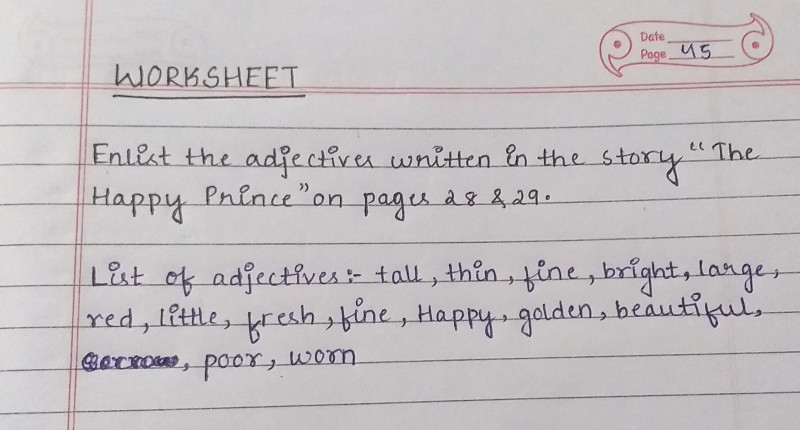 Date
Page 45
WORKSHEET
Enlist the adjectives written in the story "The
Happy Prince" on pages 28 & 29.
List of adjectives:- tall, thin, fine, bright, large,
red, little, fresh, fine, Happy, golden, beautiful,
, poor, worn